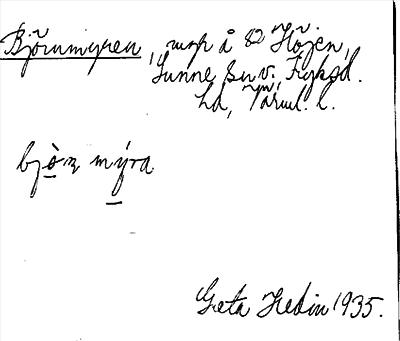 Björnmyren, msp å 82 Höjen,
Sunne sn v. Fryksd.
hd, Värml. l.
bjò̱ꞃɳ mý̱ra
Greta Hedin 1935.